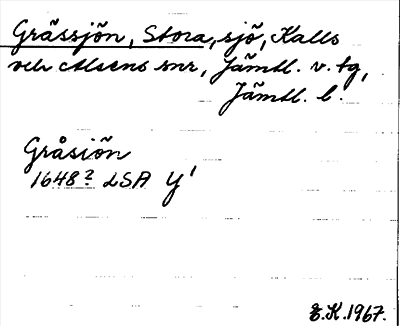 Grässjön, Stora, sjö, Kalls
och Alsens snr, Jämtl. v. tg,
Jämtl. l.
Gråsiön
1648² LSA Y¹
E.K. 1967.